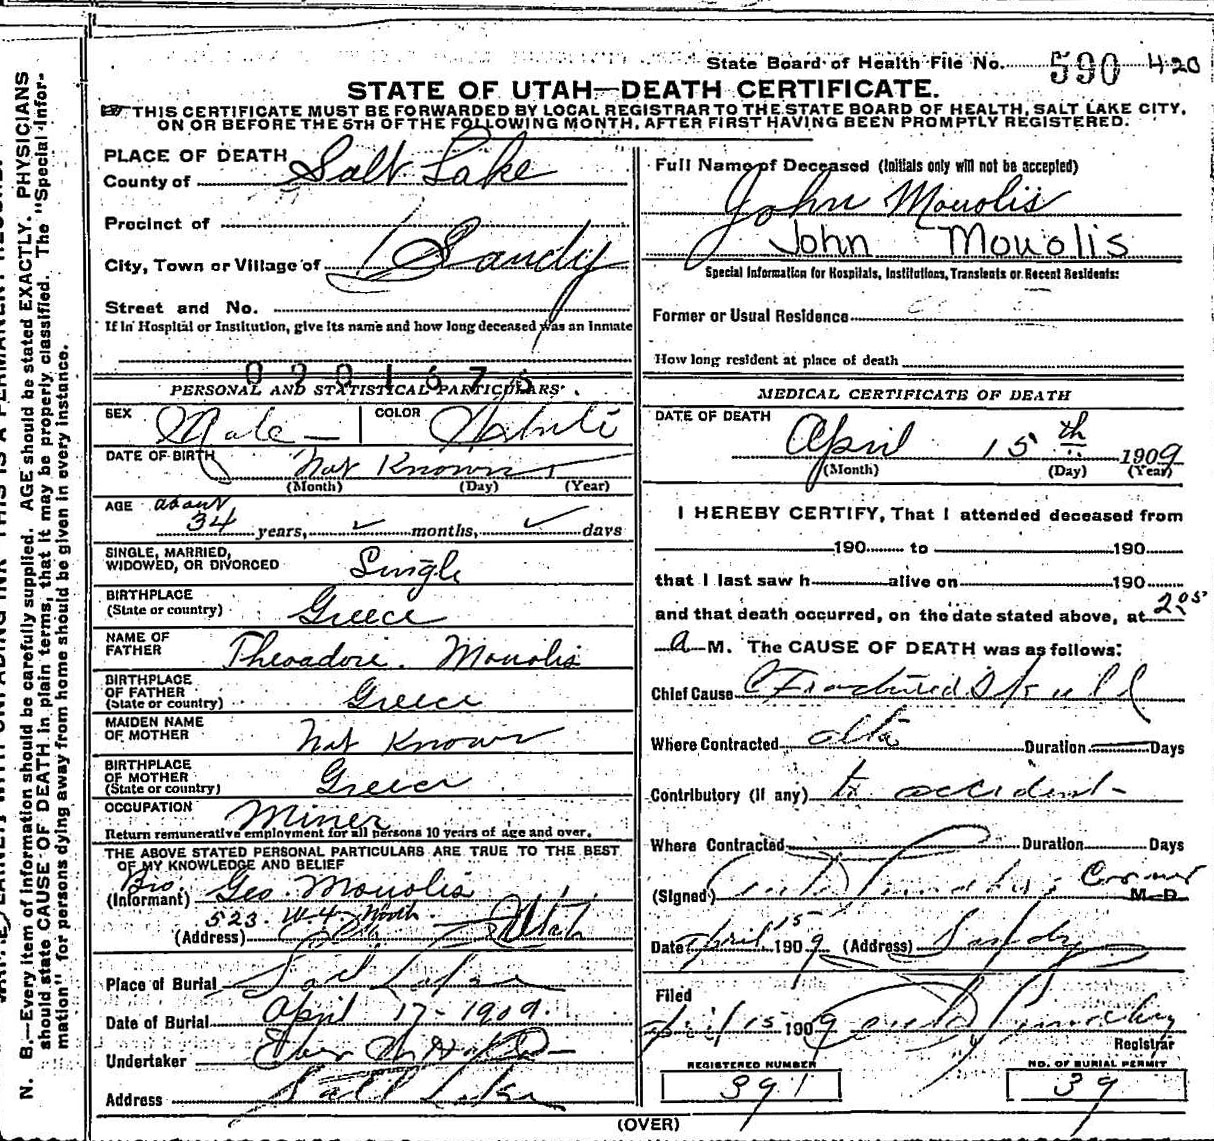 State Board of Health File No. 590 420
STATE OF UTAH—DEATH CERTIFICATE.
THIS CERTIFICATE MUST BE FORWARDED BY LOCAL REGISTRAR TO THE STATE BOARD OF HEALTH, SALT LAKE CITY,
ON OR BEFORE THE 5TH OF THE FOLLOWING MONTH, AFTER FIRST HAVING BEEN PROMPTLY REGISTERED.
PLACE OF DEATH
County of Salt Lake
Precinct of
City, Town or Village of Sandy
Street and No.
If in Hospital or Institution, give its name and how long deceased was an inmate
0201575
PERSONAL AND STATISTICAL PARTICULARS
SEX Male COLOR White
DATE OF BIRTH Not Known
(Month) (Day) (Year)
AGE about
34 years, months, days
SINGLE, MARRIED,
WIDOWED, OR DIVORCED Single
BIRTHPLACE
(State or country) Greece
NAME OF
FATHER Theoadore. Mouolis
BIRTHPLACE
OF FATHER
(State or country) Greece
MAIDEN NAME
OF MOTHER Not Known
BIRTHPLACE
OF MOTHER
(State or country) Greece
OCCUPATION Miner
Return remunerative employment for all persons 10 years of age and over.
THE ABOVE STATED PERSONAL PARTICULARS ARE TRUE TO THE BEST
OF MY KNOWLEDGE AND BELIEF
Bro.
(Informant) Geo. Mouolis
523. W 4 North.
(Address) Utah
Place of Burial Salt Lake
Date of Burial April 17-1909.
Undertaker
Address Salt Lake
Full Name of Deceased (Initials only will not be accepted)
John Mouolis
John Mouolis
Special Information for Hospitals, Institutions, Transients or Recent Residents:
Former or Usual Residence
How long resident at place of death
MEDICAL CERTIFICATE OF DEATH
DATE OF DEATH
April 15th 1909
(Month) (Day) (Year)
I HEREBY CERTIFY, That I attended deceased from
190 to 190
that I last saw h alive on 190
and that death occurred, on the date stated above, at 2:05
a M. The CAUSE OF DEATH was as follows:
Chief Cause Fractured Skull
Where Contracted alta Duration Days
Contributory (if any) accident
Where Contracted Duration Days
(Signed) Coroner M. D.
Date April 15 1909 (Address) Sandy
Filed
April 15 1909
Registrar
REGISTERED NUMBER
391
NO. OF BURIAL PERMIT
39
(OVER)
N. B.—Every item of information should be carefully supplied. AGE should be stated EXACTLY. PHYSICIANS
should state CAUSE OF DEATH in plain terms, that it may be properly classified. The "Special Infor-
mation" for persons dying away from home should be given in every instance.